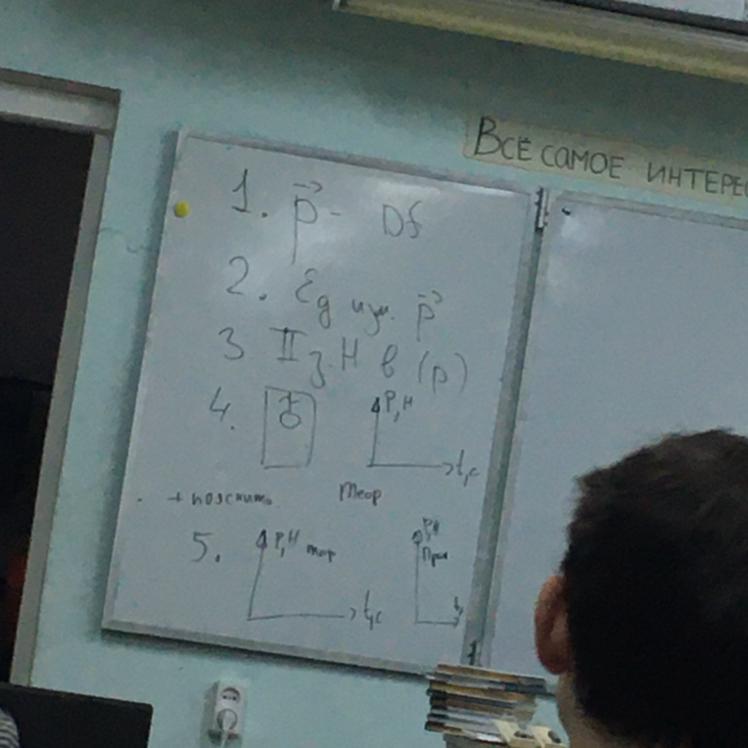 ВСЁ САМОЕ ИНТЕРЕС
1. p⃗ - Df
2. Ед изм. p⃗
3 II з.Н в (p)
4. P, Н t, с
+ пояснить теор
5. P, Н теор t, с P, Н прак t